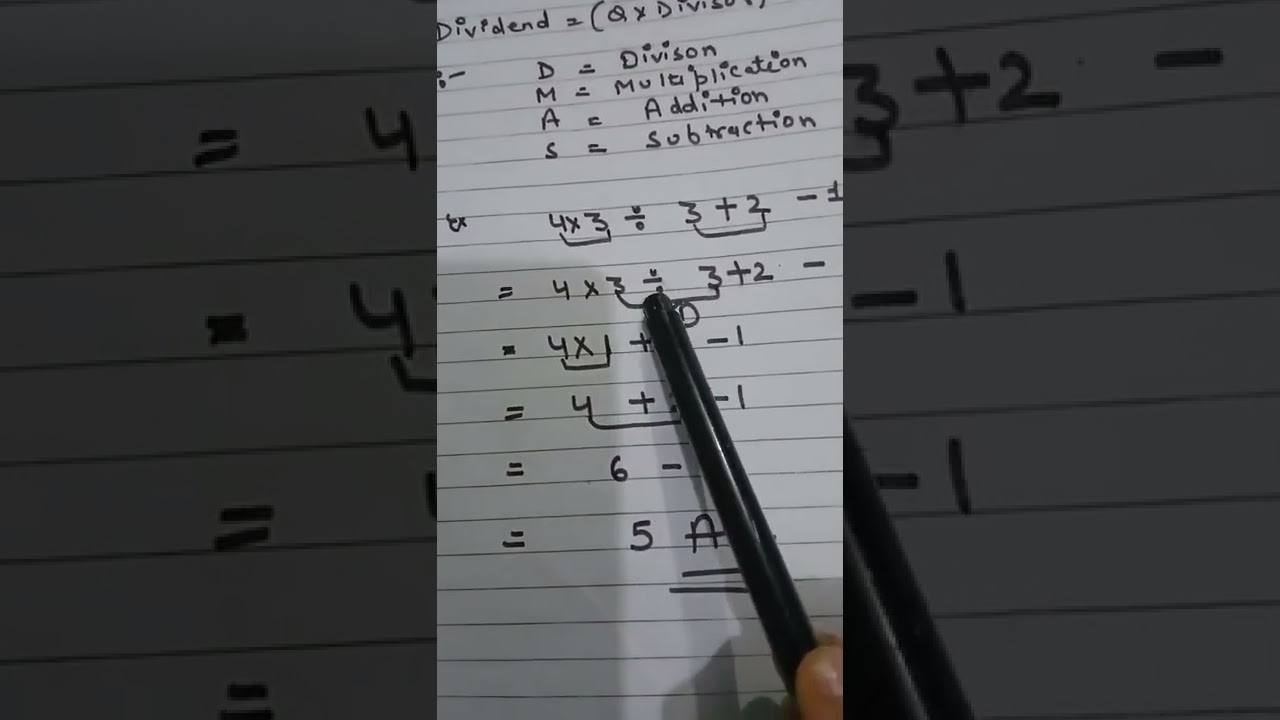 Dividend = (Q x Divisor)
:- D = Divison
M = Multiplication
A = Addition
S = Subtraction
Ex 4x3 ÷ 3+2 - 1
= 4 x 3 ÷ 3+2 -
D
= 4x1 + - 1
= 4 + - 1
= 6 -
= 5 A